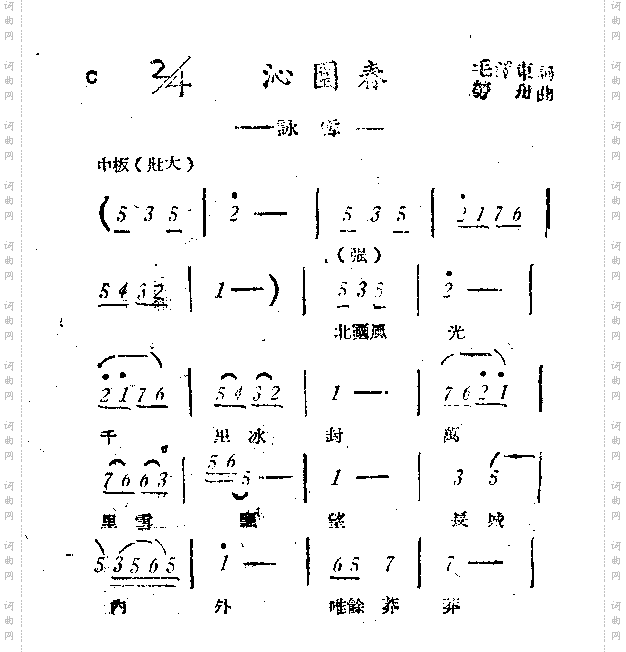 C 2/4 沁園春 毛澤東詞
勞舟曲
——詠雪——
中板（壯大）
( 5 3 5 | 2 — | 5 3 5 | 2 1 7 6 |
5 4 3 2 | 1 — ) | （强） 5 3 5 | 2 — |
北國風 光
2 1 7 6 | 5 4 3 2 | 1 — · | 7 6 2 1 |
千 里 冰 封 萬
7 6 6 3 | 5 6 5 — | 1 — | 3 5 |
里 雪 飄 望 長 城
5 3 5 6 5 | 1 — | 6 5 7 | 7 — |
內 外 唯餘 莽 莽
词曲网